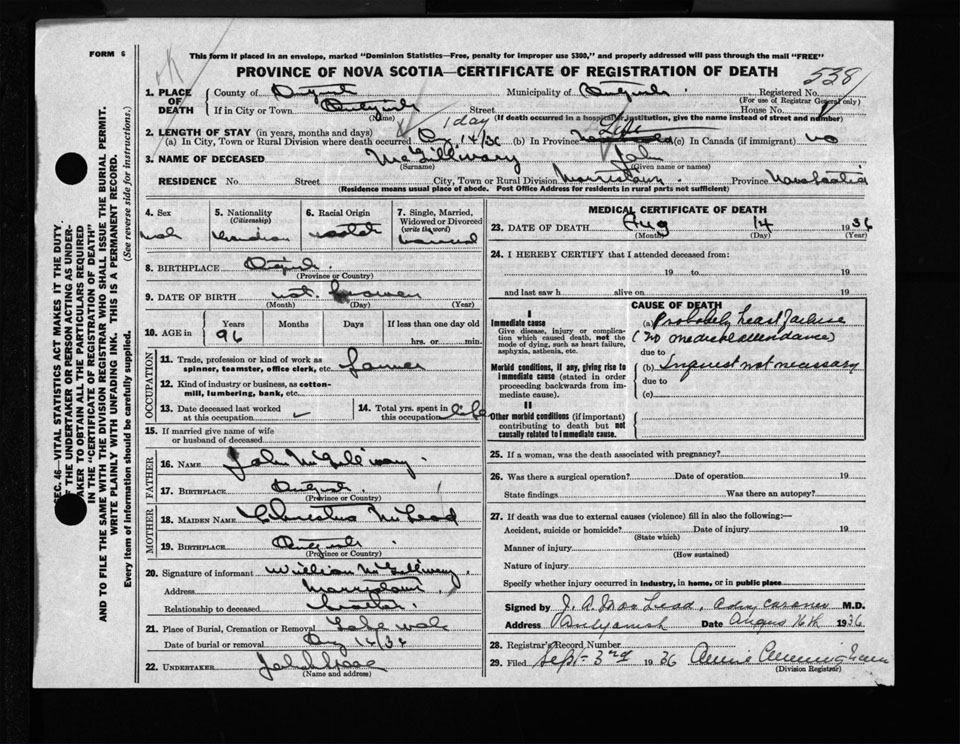 FORM 6
This form if placed in an envelope, marked "Dominion Statistics—Free, penalty for improper use $300," and properly addressed will pass through the mail "FREE"
PROVINCE OF NOVA SCOTIA—CERTIFICATE OF REGISTRATION OF DEATH
538
1. PLACE OF DEATH
County of
Municipality of
Registered No.
(For use of Registrar General only)
If in City or Town
(Name)
Street
House No.
(If death occurred in a hospital or institution, give the name instead of street and number)
1 day
2. LENGTH OF STAY (in years, months and days)
(a) In City, Town or Rural Division where death occurred
14/36
(b) In Province
Life
(c) In Canada (if immigrant)
no
3. NAME OF DECEASED
McGillivary
(Surname)
John
(Given name or names)
RESIDENCE No.
Street
City, Town or Rural Division
Morristown
Province
Nova Scotia
(Residence means usual place of abode. Post Office Address for residents in rural parts not sufficient)
4. Sex
male
5. Nationality
(Citizenship)
Canadian
6. Racial Origin
Scotch
7. Single, Married, Widowed or Divorced
(write the word)
8. BIRTHPLACE
(Province or Country)
9. DATE OF BIRTH
not known
(Month) (Day) (Year)
10. AGE in
Years
Months
Days
If less than one day old
96
hrs. or min.
OCCUPATION
11. Trade, profession or kind of work as spinner, teamster, office clerk, etc.
Farmer
12. Kind of industry or business, as cotton-mill, lumbering, bank, etc.
13. Date deceased last worked at this occupation
14. Total yrs. spent in this occupation
life
15. If married give name of wife or husband of deceased
FATHER
16. NAME
John McGillivary
17. BIRTHPLACE
(Province or Country)
MOTHER
18. MAIDEN NAME
McLead
19. BIRTHPLACE
(Province or Country)
20. Signature of informant
William McGillivary
Address
Morristown
Relationship to deceased
21. Place of Burial, Cremation or Removal
Lakevale
Date of burial or removal
22. UNDERTAKER
(Name and address)
MEDICAL CERTIFICATE OF DEATH
23. DATE OF DEATH
Aug 14 1936
(Month) (Day) (Year)
24. I HEREBY CERTIFY that I attended deceased from:
19 to 19
and last saw h alive on 19
CAUSE OF DEATH
I
Immediate cause
Give disease, injury or complication which caused death, not the mode of dying, such as heart failure, asphyxia, asthenia, etc.
(a) Probably heart failure
(no medical attendance)
due to
Morbid conditions, if any, giving rise to immediate cause (stated in order proceeding backwards from immediate cause).
(b) Inquest not necessary
due to
(c)
II
Other morbid conditions (if important) contributing to death but not causally related to immediate cause.
25. If a woman, was the death associated with pregnancy?
26. Was there a surgical operation?
Date of operation 19
State findings
Was there an autopsy?
27. If death was due to external causes (violence) fill in also the following:—
Accident, suicide or homicide?
Date of injury 19
(State which)
Manner of injury
(How sustained)
Nature of injury
Specify whether injury occurred in industry, in home, or in public place
Signed by J. A. MacLead, coroner M.D.
Address Antigonish
Date August 16th 1936
28. Registrar's Record Number
29. Filed Sept 3rd 1936
Annie Cunningham
(Division Registrar)
SEC. 46—VITAL STATISTICS ACT MAKES IT THE DUTY
OF THE UNDERTAKER OR PERSON ACTING AS UNDERTAKER TO OBTAIN ALL THE PARTICULARS REQUIRED
IN THE "CERTIFICATE OF REGISTRATION OF DEATH"
AND TO FILE THE SAME WITH THE DIVISION REGISTRAR WHO SHALL ISSUE THE BURIAL PERMIT.
WRITE PLAINLY WITH UNFADING INK. THIS IS A PERMANENT RECORD.
Every item of information should be carefully supplied. (See reverse side for instructions.)